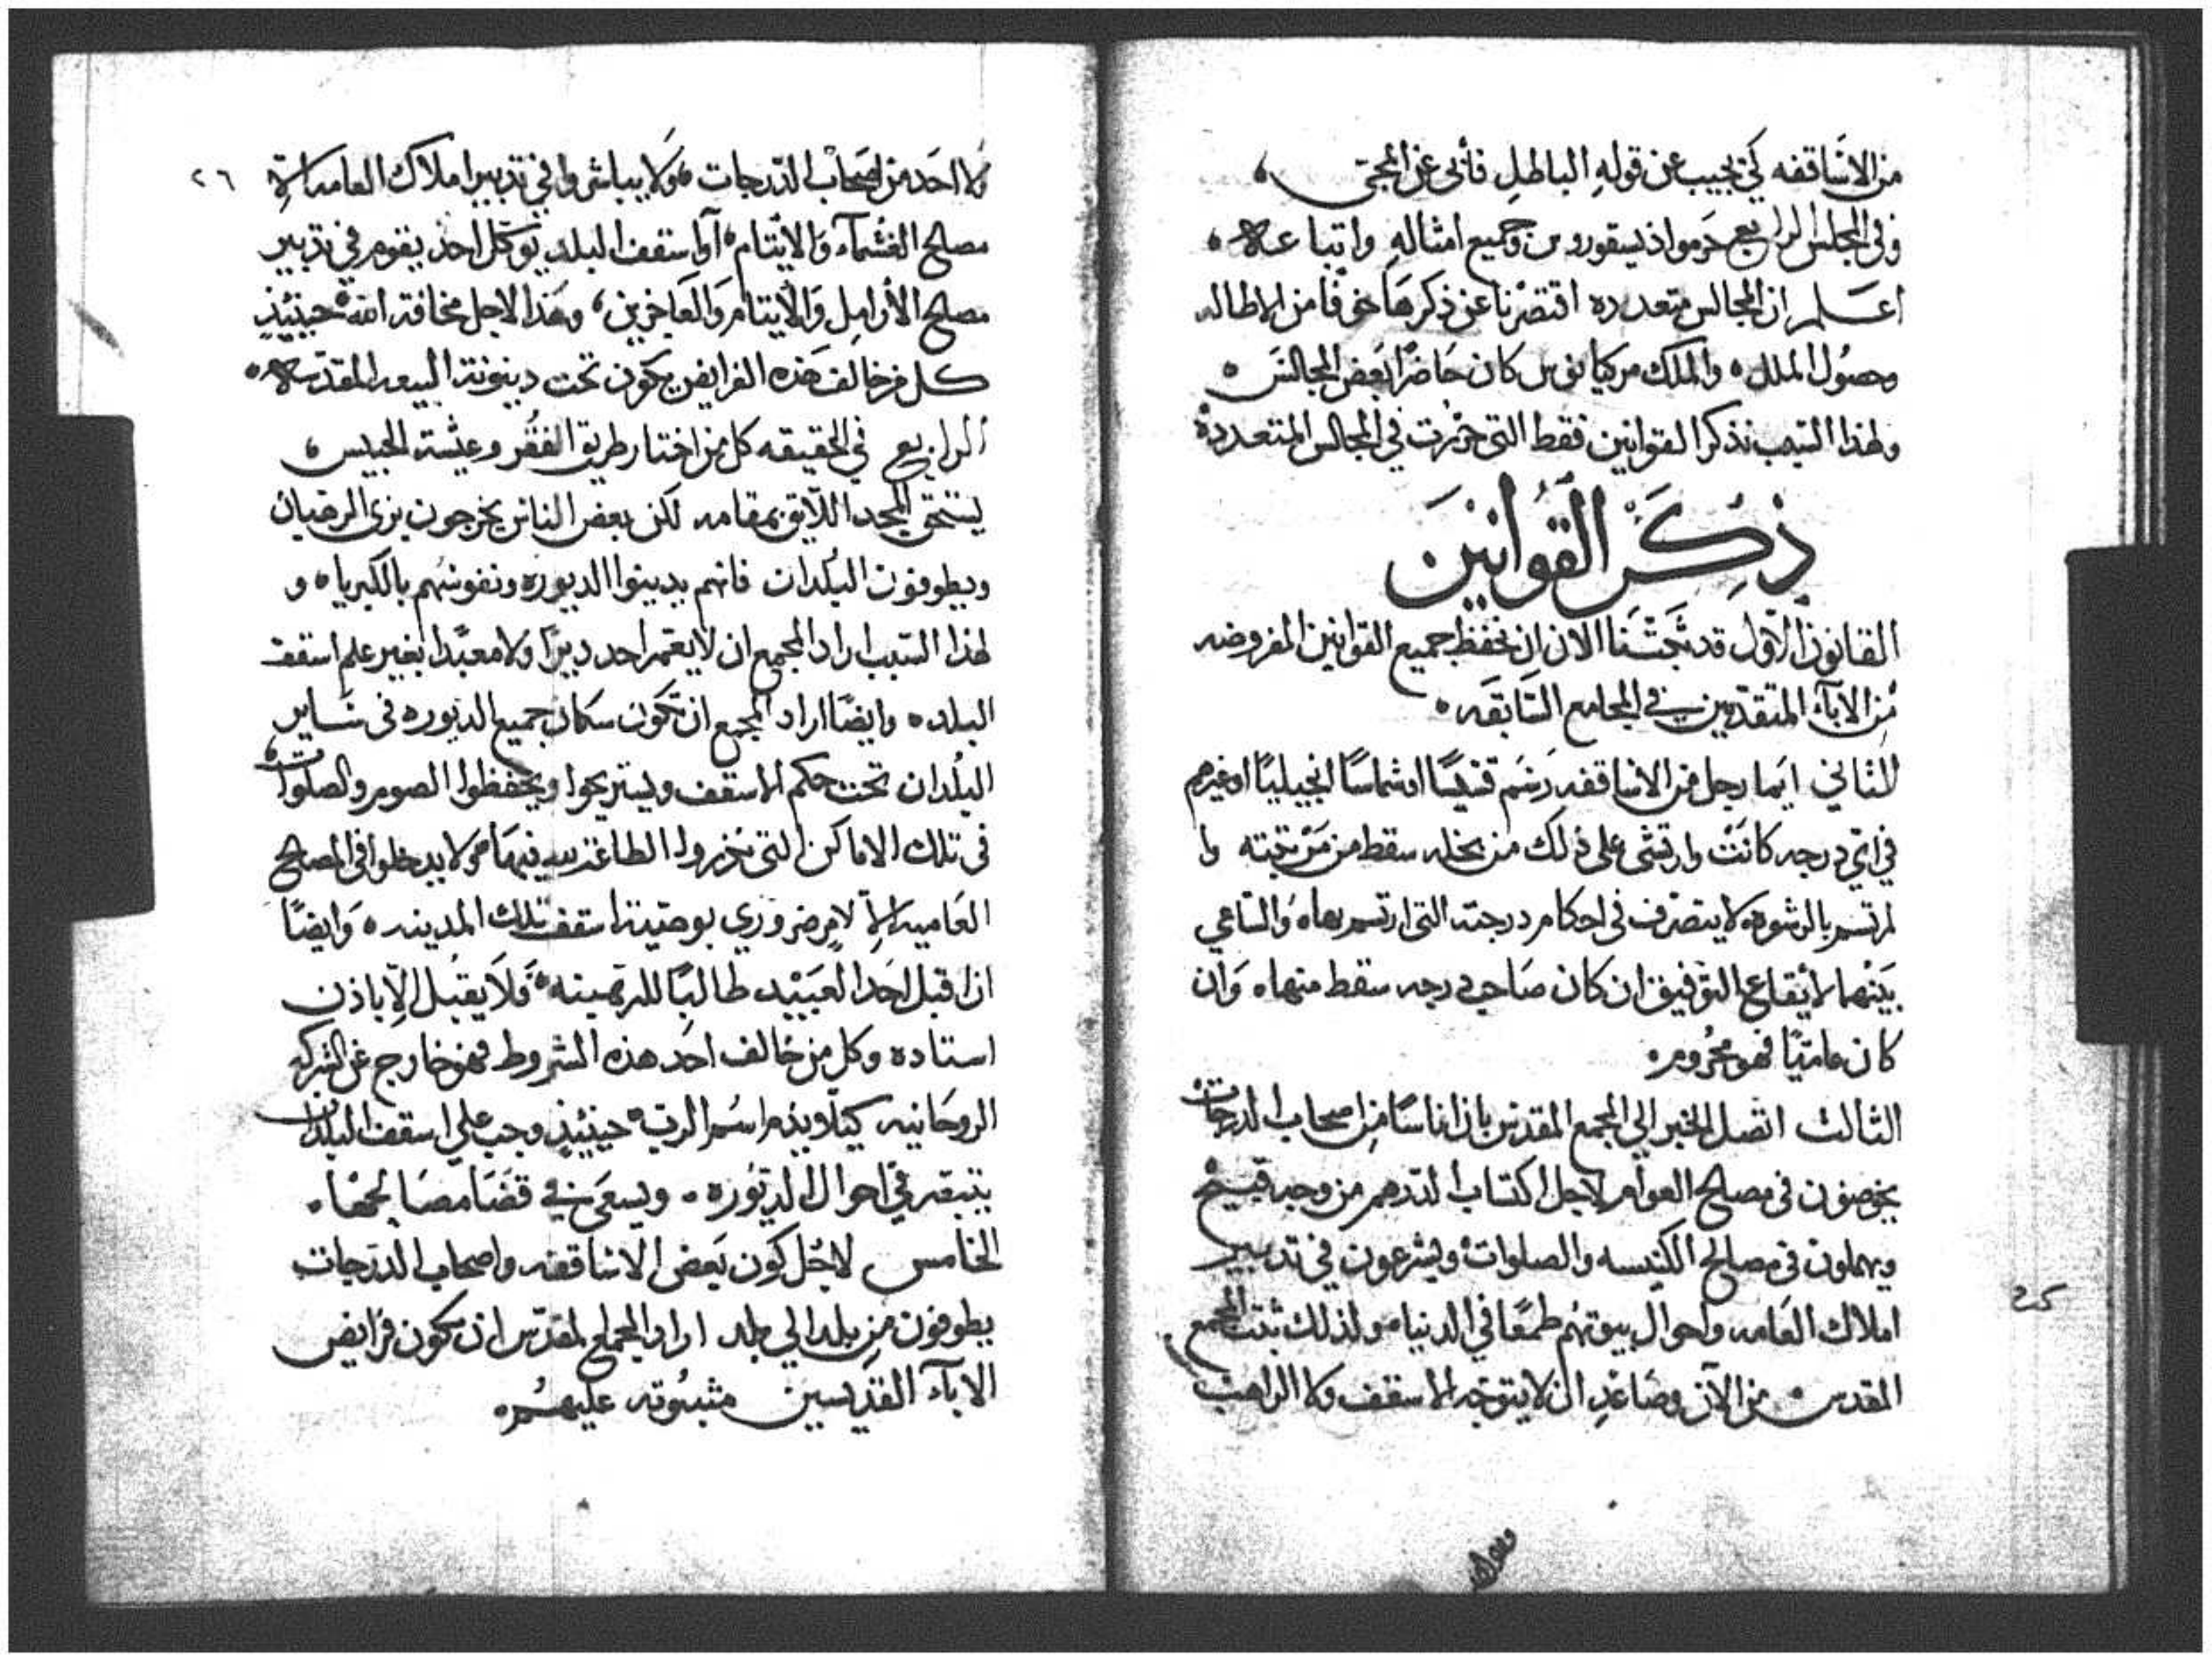 من الاساقفه كي يجيب عن قوله الباطل فأبى عن المجى
وفي المجلس الرابع حَرموا ذيسقوروس وجميع امثاله واتباعه
اعلم ان المجالس متعدده اقتصرنا عن ذكرها خوفًا من الاطاله
وحصُول الملل ه والملك مركيانوس كان حَاضرًا بَعض المجالسَ ه
ولهذا السبب نذكر القوانين فقط التي حررت في المجالس المتعدده
ذِكرَ القَوانينَ
القانون الاول قد تجشمنا الان ان نحفظ جميع القوانين المفروضه
من الاباء المتقدمين في المجامع السَّابقَه ه
الثاني ايما رجل من الاساقفه رَسَم قسّيسًا او شماسًا انجيليًا او غيرهم
في اي درجه كانَتْ وارتشى على ذلك من بخله سقط من مَرتبته وا
لمرتسم بالرشوه لا يتصرف في احكام درجته التي ارتسم بهاه والسَّاعي
بَينهما لايقاع التوفيق ان كان صَاحب درجه سقط منهاه وَان
كان عاميًّا فهو محرُومه
الثالث اتصل الخبر الي المجمع المقدس بان اناسًا من اصحاب الدرجات
يخوضون في مصالح العوام لاجل اكتساب الدرهم من وجه قبيح
ويهملون في مصالح الكنيسه والصلوات ويشرعون في تدبير
املاك العَامه واحوال بيوتهم طمعًا في الدنيا ولذلك ثبت المجمع
المقدس من الآن وصَاعدِ ان لا يتوجه الاسقف ولا الراهب
٢٦
ولا احَد من اصحَاب الدّرجات ولا يباشروا في تدبير املاك العاميه الا
مصالح الغشماء وَالايتام او اسقف البلد يوَكل احد يقوم في تدبير
مصالح الأرامِل وَالأيتام وَالعَاجزين، وهَذا لاجل مخافة الله حينئيذٍ
كل من خالف هَذه الفرايض يكون تحت دينونة البيعه المقدسه ه
الرابع في الحقيقه كل من اختار طريق الفقر وعيشة الحبيس
يستحق المجد اللايق بمقامه لكن بعض الناس يخرجون بزي الرهبان
ويطوفون البُلدان فانهم يدينوا الديوره ونفوسهم بالكبرياه و
لهذا السبب اراد المجمع ان لا يعمر احد ديرًا ولا معبدًا بغير علم اسقف
البلده وايضًا اراد المجمع ان تكون سكان جميع الديوره في سَاير
البلدان تحت حكم الاسقف ويستريحوا ويحفظوا الصوم والصلوات
في تلك الاماكن التي نذروا الطاعة لله فيها ولا يدخلوا في المصالح
العاميه الا لامرٍ ضروري بوصية اسقف تلك المدينه ه وَايضًا
ان اقبل احَد العَبيْد طالبًا للرهبنه ه فلا يقبل الا باذن
استاده وكل من خالف احَد هذه الشروط فهو خارج عن الشركه
الروحَانيه كيلا يذم اسم الرب حينئيذٍ وجب على اسقف البلدان
يتبصر في احوال الديوره ه ويسعَى في قضَا مصَالحهَا ه
الخامس لاجْل كون بَعض الاساقفه واصحاب الدرَجات
يطوفون من بلد الي بلد اراد المجمع المقدس ان تكون فرايض
الاباء القديسين مثبوته عليهُم ه
25